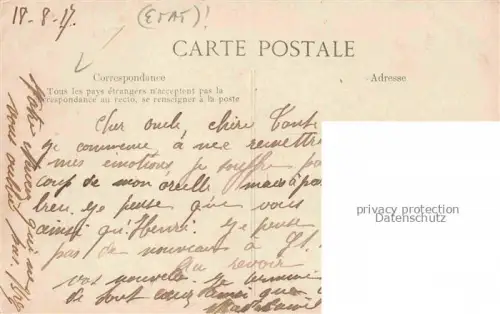 18-8-17.
(ETAT)!
CARTE POSTALE
Correspondance
Adresse
Tous les pays étrangers n'acceptent pas la
respondance au recto, se renseigner à la poste
Cher oncle, chère Tante
je commence à me remettre
mes émotions je souffre
coup de mon oreille mais à par
bien. Je pense que vous
ainsi qu'Henri. Je pense
pas de nouveau à
Au revoir
vos nouvelles. Je termine
de tout cœur ainsi que
Votre qui ne
vous oublie pas.
privacy protection
Datenschutz